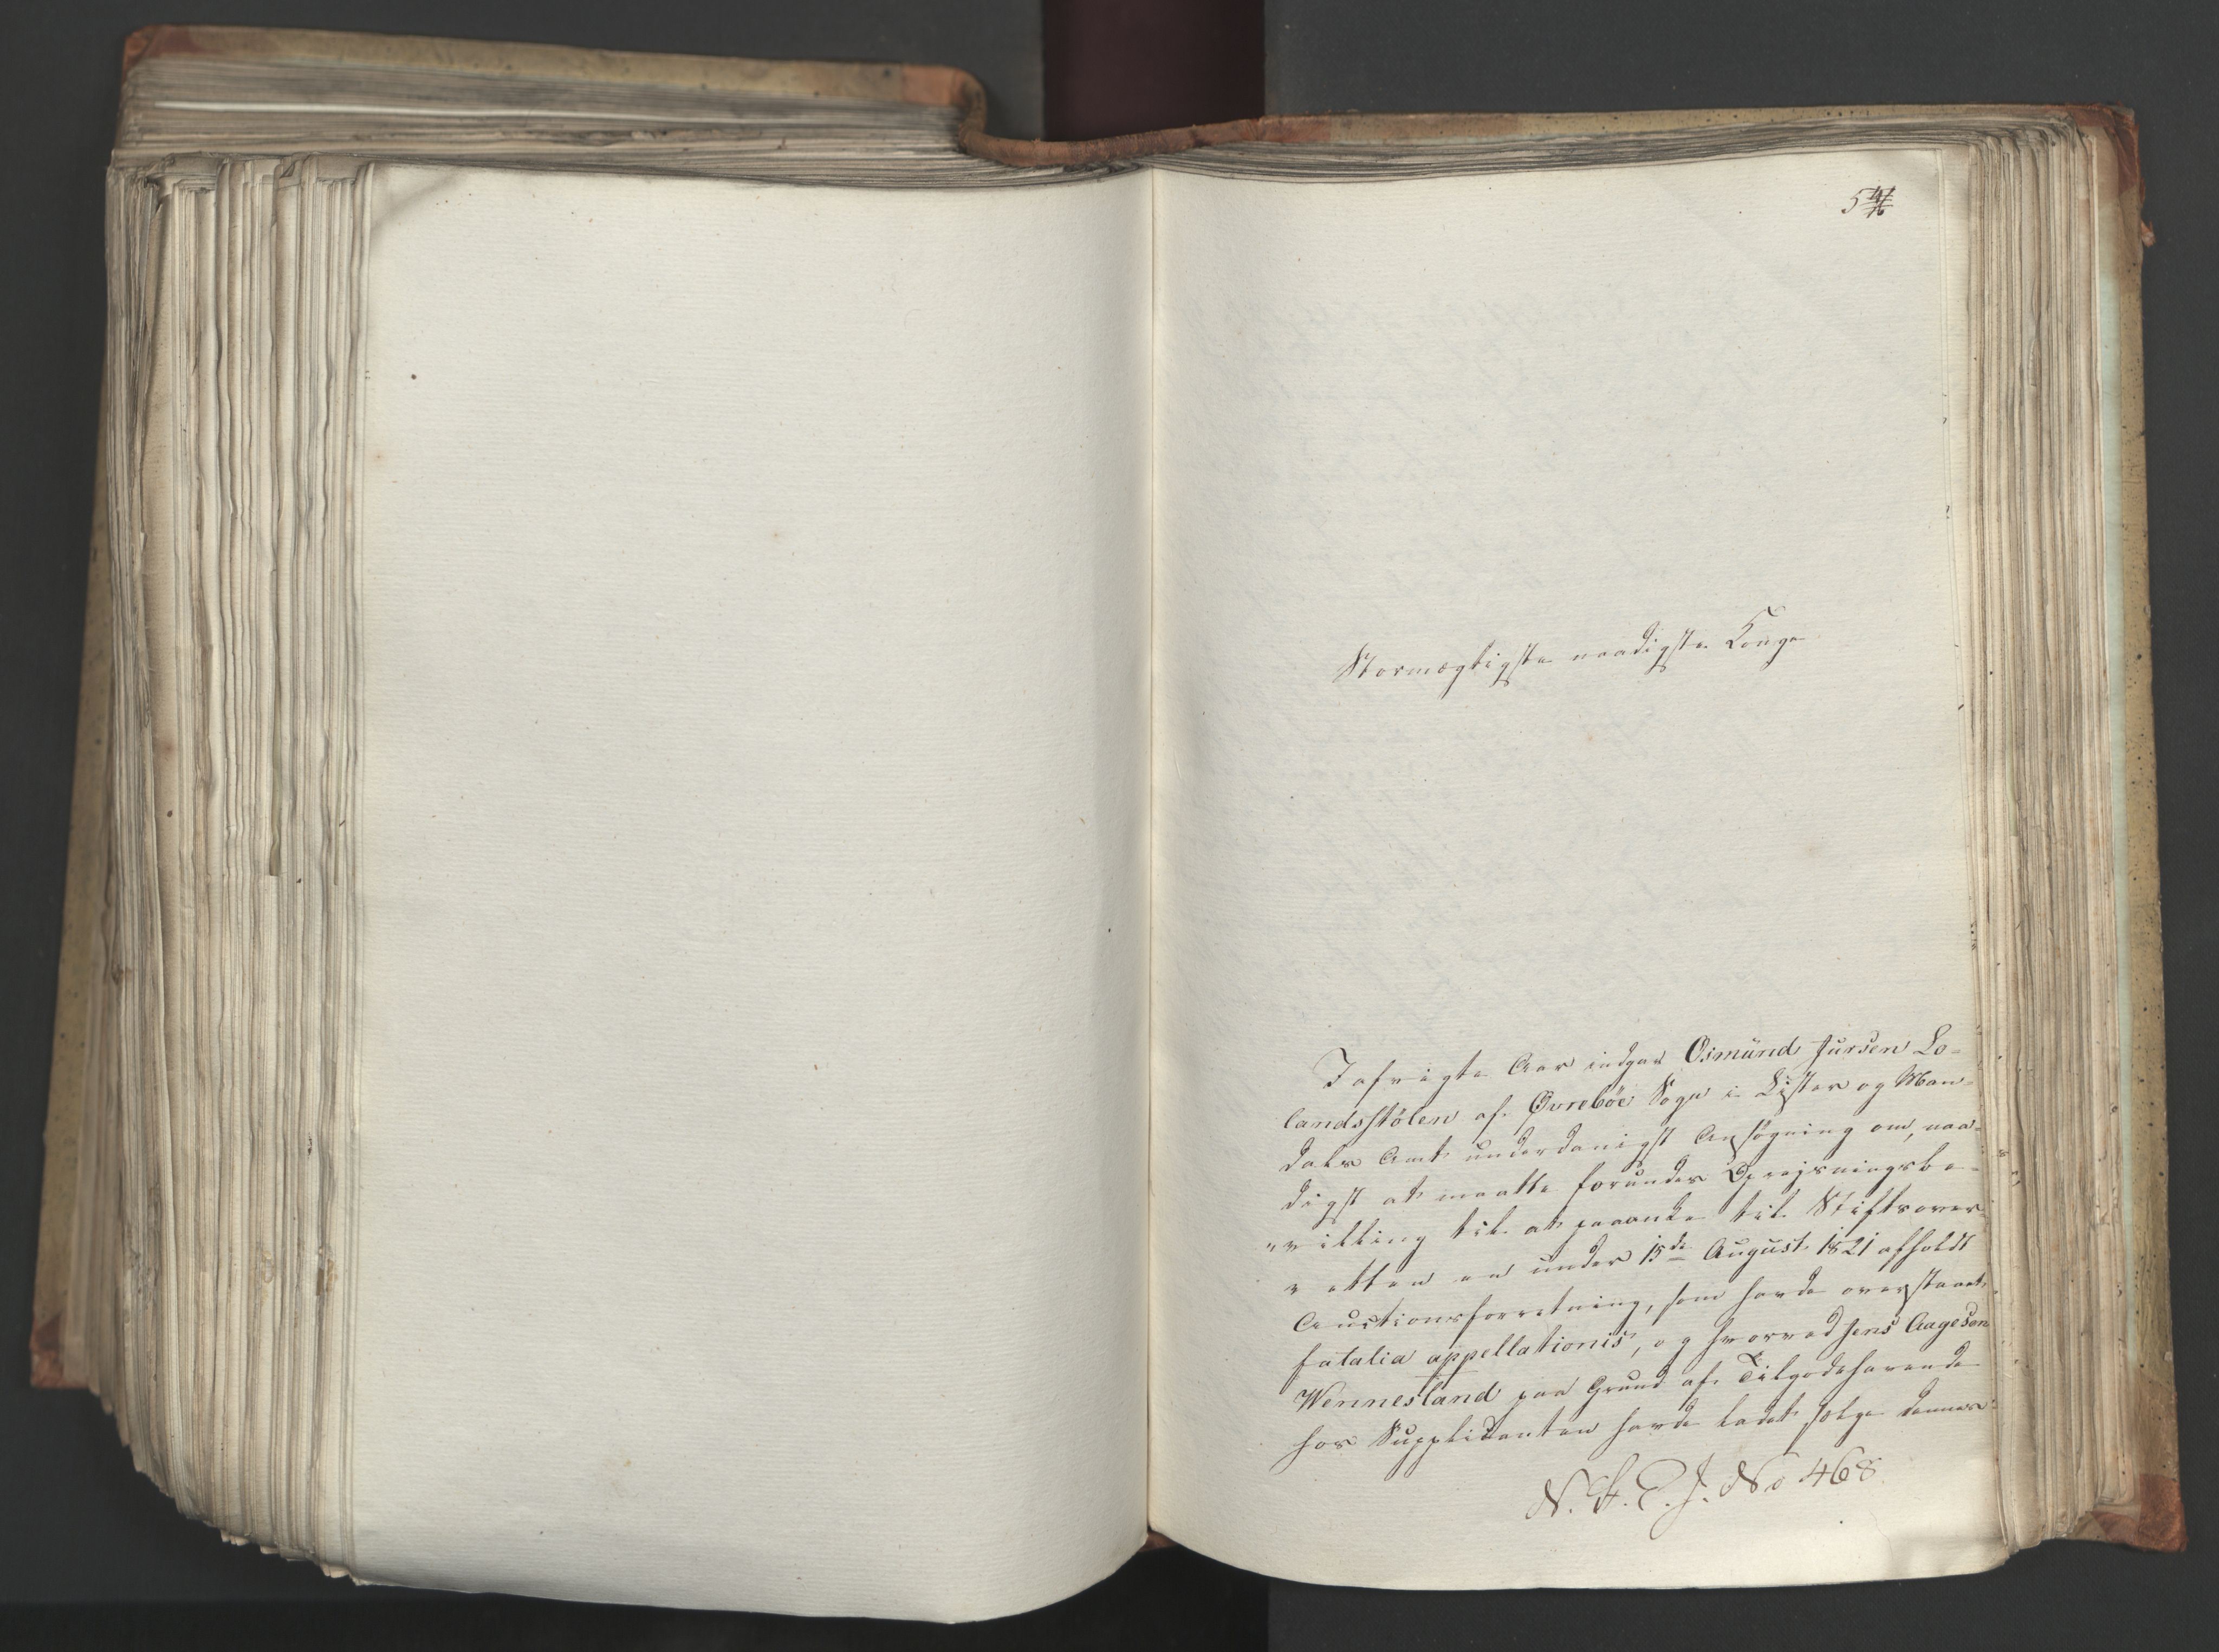 Stormægtigste naadigste Konge
I afvigte Aar indgav Osmund Jursen Lo-
landsstölen af Øvreböe Sogn i Lister og Man-
dals Amt underdanigst Ansøgning om, naa-
digst at maatte forundes Oprejsningsbe-
villing til at paaanke til Stiftsover-
retten en under 15de August 1821 afholdt
Auctionsforretning, som havde oversstaaet
fatalia appellationis, og hvorved Jens Aagesen
Wennesland paa Grund af Tilgodehavende
hos Supplicanten havde ladet sælge dennes
N. H. C. J. No 468